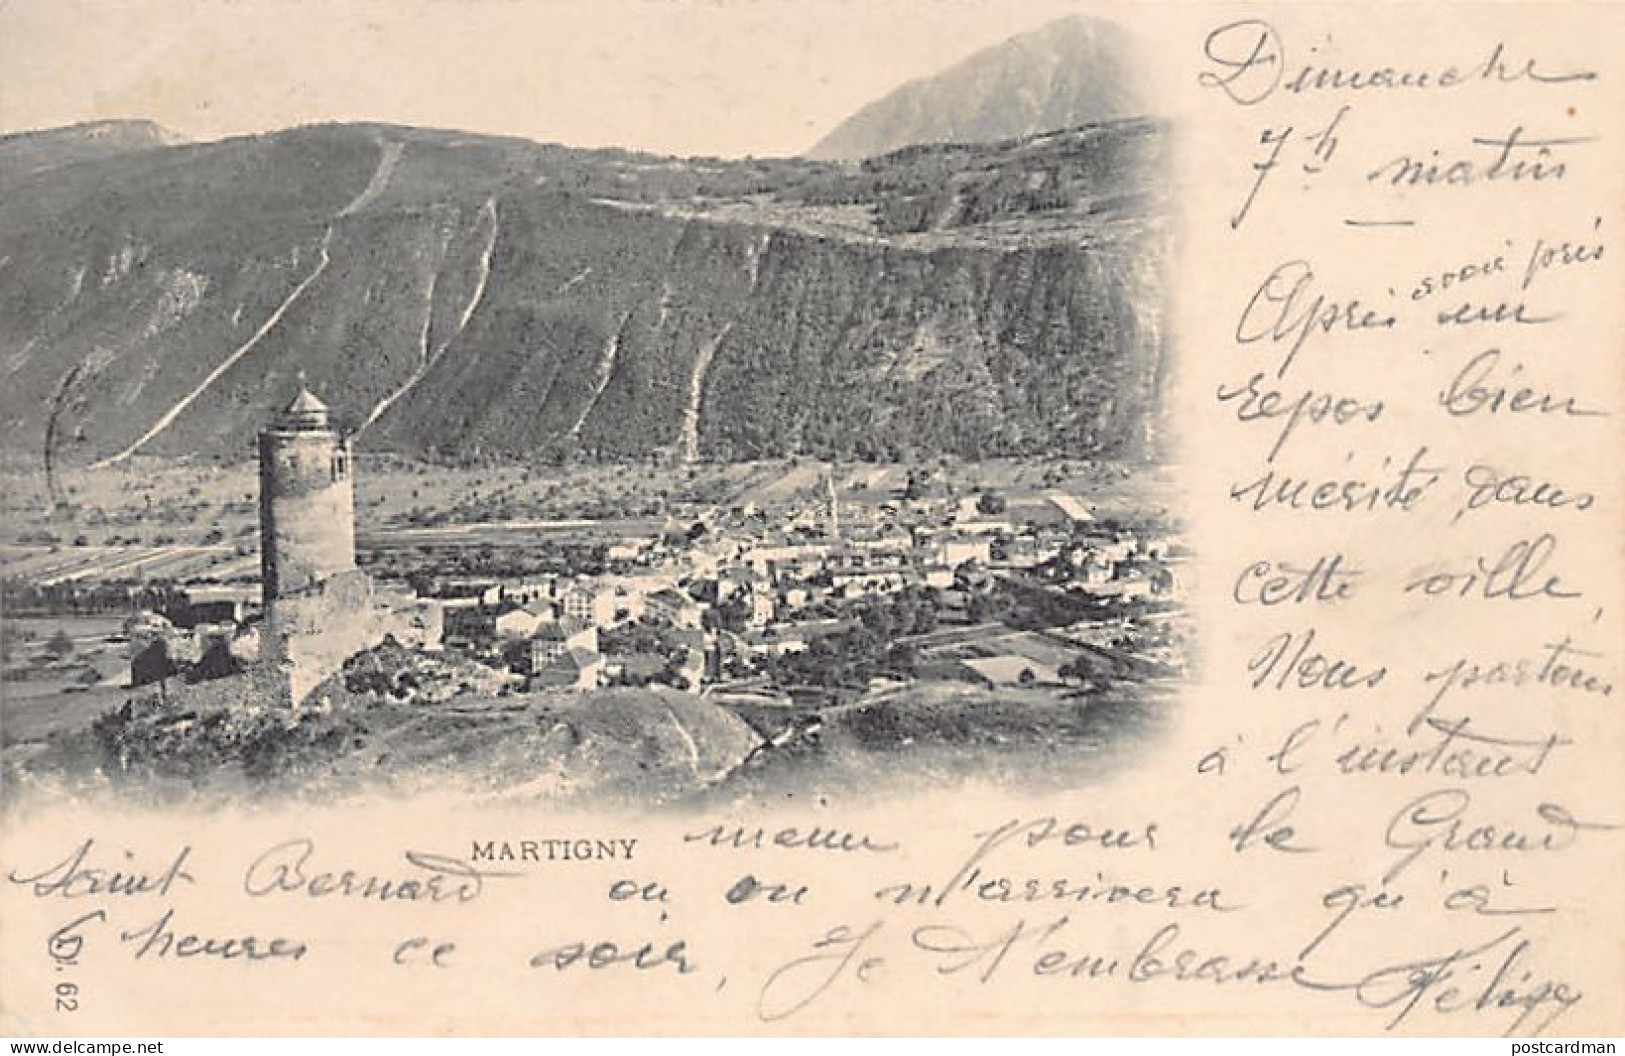 Dimanche
7h matin
—
Après avoir pris un
repos bien
mérité dans
cette ville,
Nous partons
à l'instant
même pour le Grand
Saint Bernard ou on n'arrivera qu'à
6 heures ce soir, Je t'embrasse
MARTIGNY
J. 62
delcampe.net
postcardman